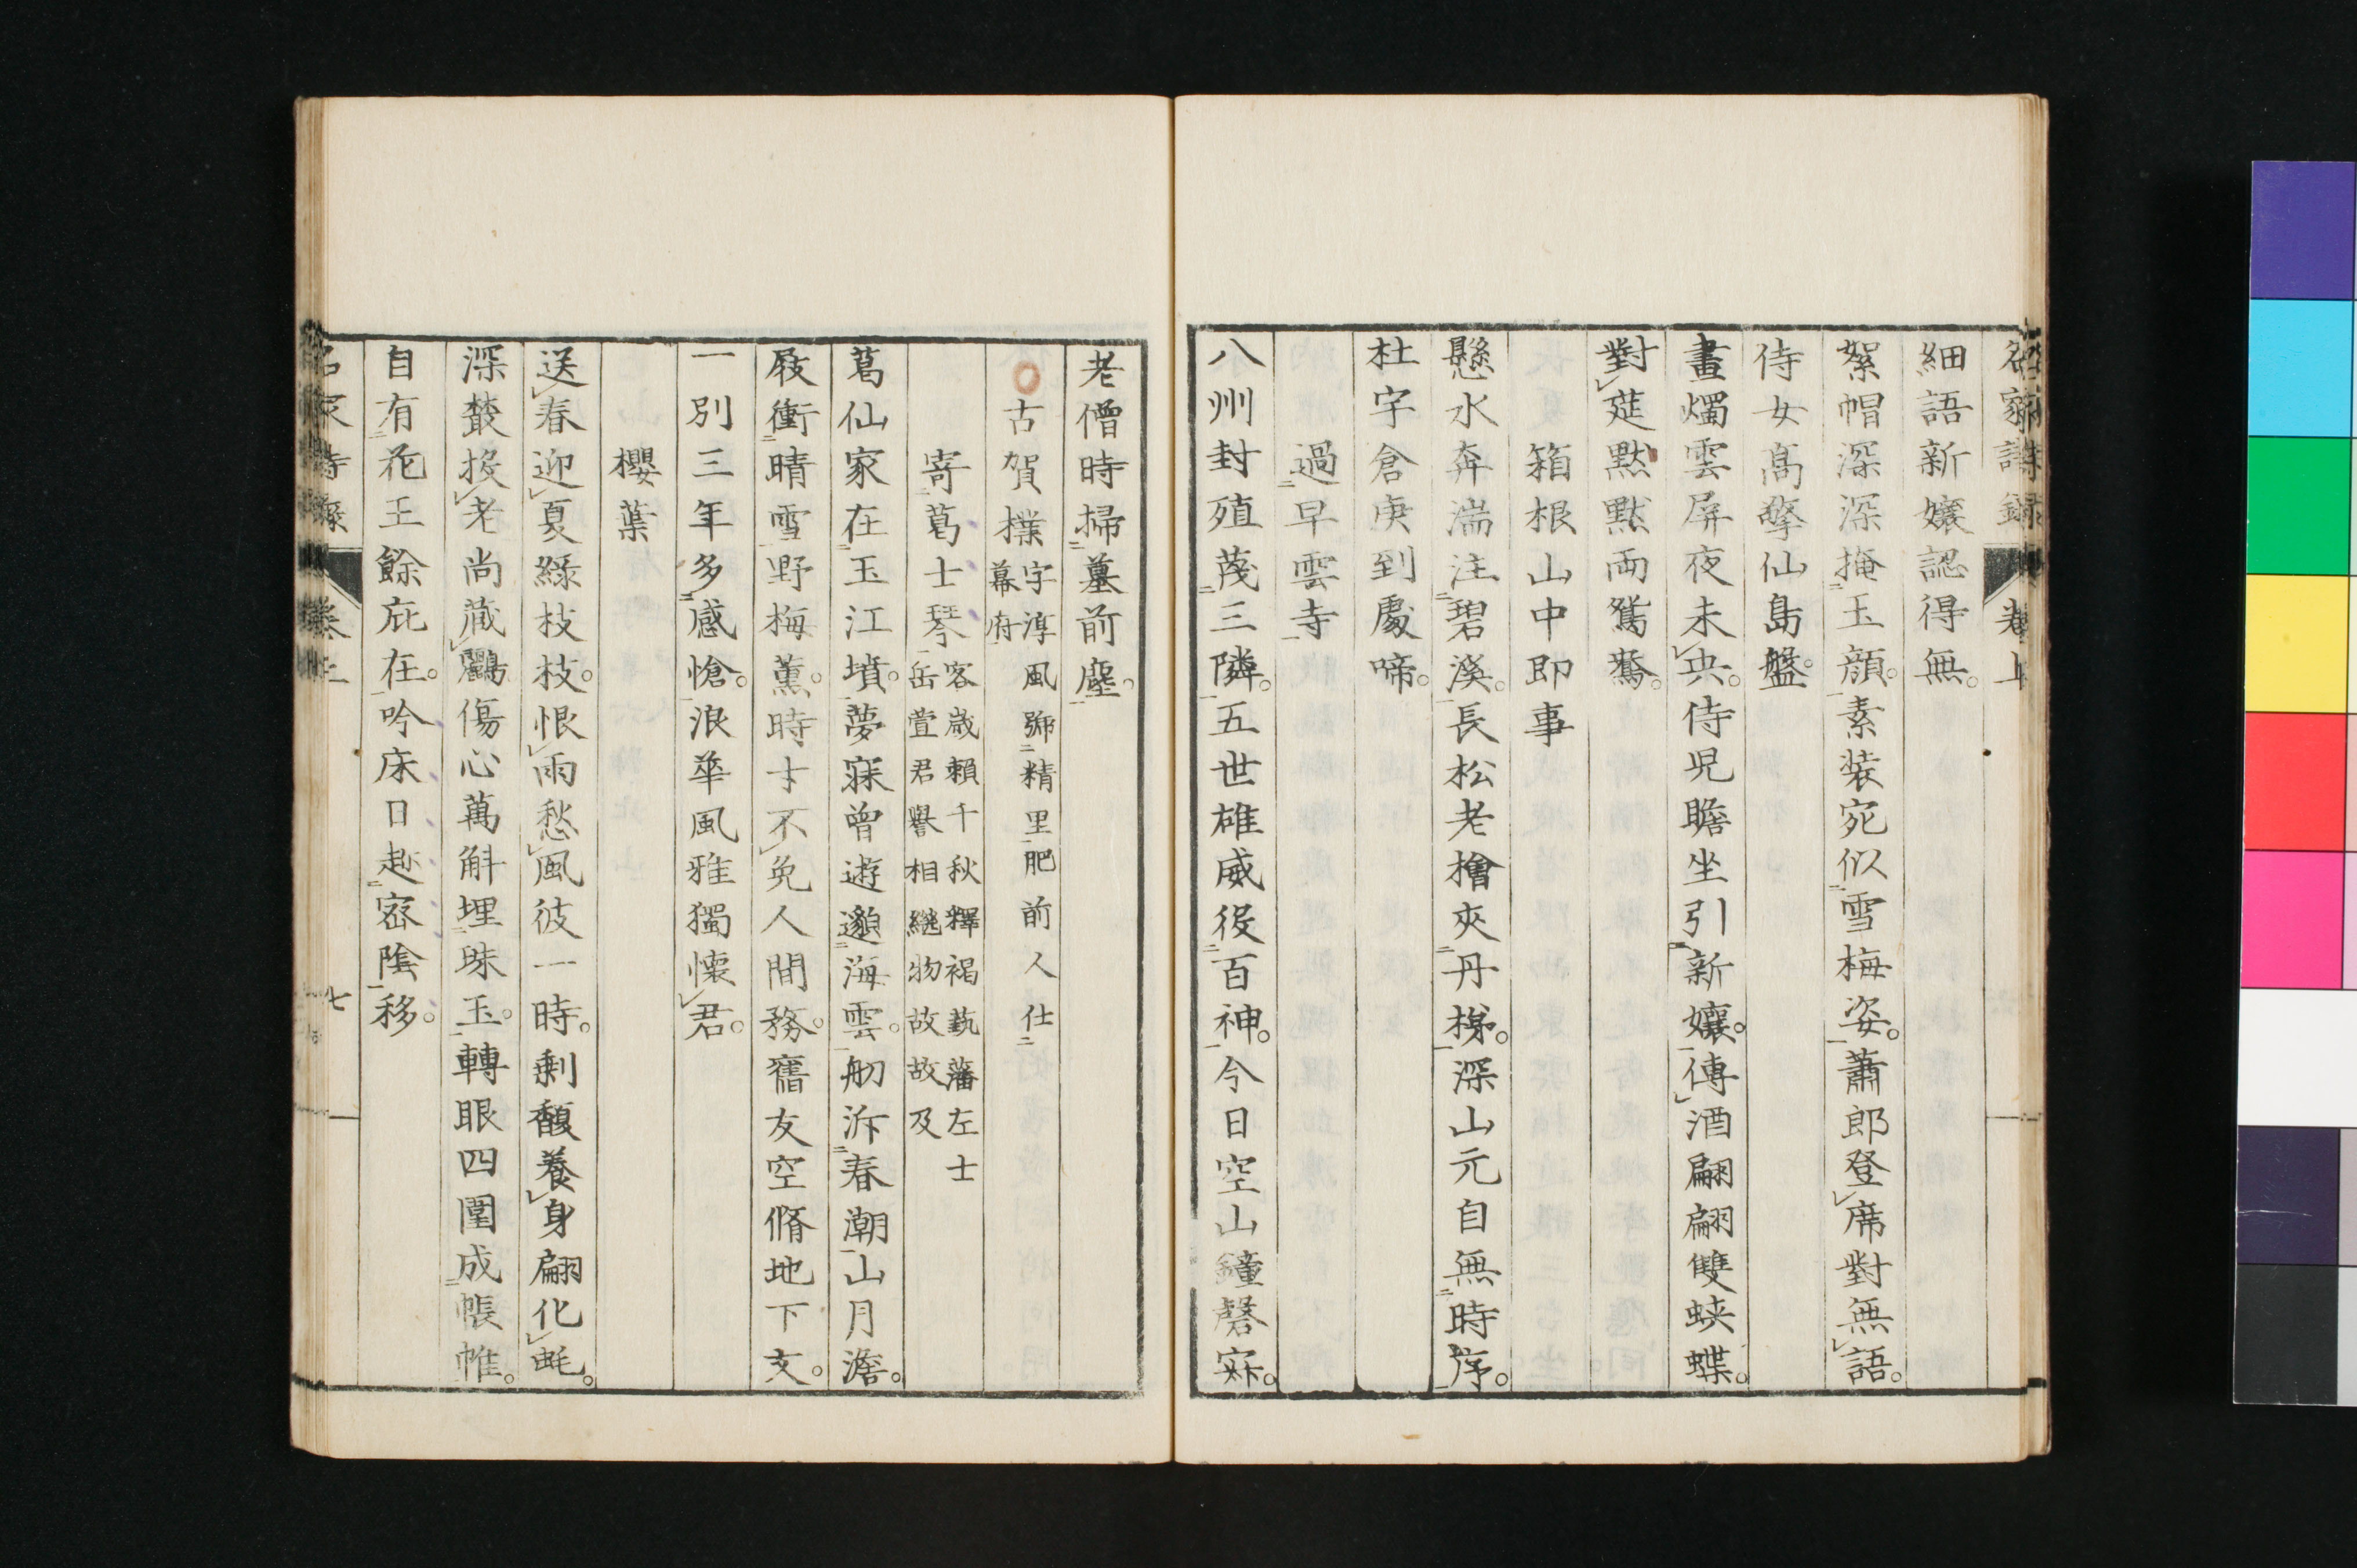 名家詩録 卷上
細語新孃認得無。
絮帽深深掩玉顔。素装宛似雪梅姿。蕭郎登席對無語。
侍女高擎仙島盤。
畫燭雲屏夜未央。侍児瞻坐引新孃。傳酒翩翩雙蛺蝶。
對莚黙黙兩鴛鴦。
箱根山中即事
懸水奔湍注碧溪。長松老檜夾丹梯。深山元自無時序。
杜字倉庚到處啼。
過早雲寺
八州封殖茂三隣。五世雄威役百神。今日空山鐘磬寂。
老僧時掃墓前塵。
古賀樸 字淳風號精里肥前人仕
幕府
寄葛士琴 客歳頼千秋釋褐藝藩左士
岳萱君譽相繼物故故及
葛仙家在玉江墳。夢寐曾遊邈海雲。舠泝春潮山月澹。
屐衝晴雪野梅薫。時才不免人間務。舊友空脩地下文。
一別三年多感愴。浪華風雅獨懷君。
櫻葉
送春迎夏緑枝枝。恨雨愁風彼一時。剰馥養身翩化蚝。
深叢投老尚蔵鸝。傷心萬斛埋珠玉。轉眼四圍成帳帷。
自有花王餘庇在。吟床日趁密陰移。
名家詩録 卷上 七